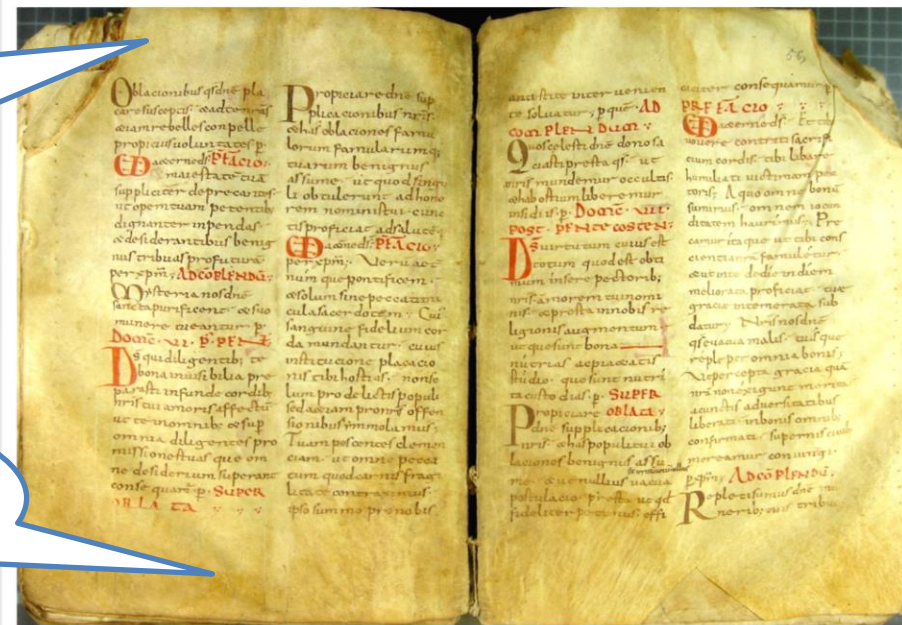 Oblacionibus qs dne pla
care susceptis · & ad te nras
& iam rebelles conpelle
propicius voluntates p·
aeterne ds· PFACIO·
maiestate tua
suppliciter deprecantes·
ut opem tuam petentib;
dignanter inpendas·
& desiderantibus benig
nus tribuas profutura·
per xpm; AD CÕPLENDU·
Mysteria nos dne
sancta purificent· & suo
munere tueantur· p·
DOMC· VI· P· PEN
Ds qui diligentib; te
bona inuisibilia pre
parasti infunde cordib;
nris tui amoris affectu
ut te in omnib; & sup
omnia diligentes pro
missiones tuas que om
ne desiderium superant
consequam p· SUPER
OBLATA
Propiciare dne sup
plicacionibus nris·
& has oblaciones famu
lorum famularumq;
tuarum benignus
assume· ut quod singu
li obtulerunt ad hono
rem nominis tui· cunc
tis proficiat ad salute
aeterne ds· PFACIO·
per xpm; Verum aet
num que pontificem·
& solum sine peccati ma
cula sacerdotem· Cui
sanguine fidelium cor
da mundantur· cuius
institucione placacio
nis tibi hostias· non so
lum pro delictis populi
sed aeciam pro nris offen
sionibus immolamus;
Tuam poscentes clemen
ciam· ut omne pecca
tum quod carnis fragi
litate contraximus·
ipso summo pro nobis
antistite interuenien
te soluatur; p que· AD
COMPLENDUM·
Quos celesti dne dono sa
ciasti presta qs· ut
a nris mundemur occultis·
& ab ostium liberemur
insidias· p· DOMC· VII·
POST· PENTECOSTEN·
Ds uirtutum cuius est
totum quod est obti
mum insere pectorib;
nris amorem tui nomi
nis· & presta in nobis re
ligionis augmentum
ut que sunt bona
nutrias ac piaetatis
studio· que sunt nutri
ta custodias· p· SUPER
Propiciare OBLATA·
dne supplicacionib;
nris· & has populi tui ob
laciones benignus assu
me· & ut nullius uacua
postulacio presta ut qd
fideliter petimus· effi
55
caciter consequamur p
PREFACIO
aeterne ds· Et tibi
uouere contriti sacrifi
cium cordis· tibi libare
humiliati uictimam pec
toris· A quo omne bonu
sumimus· omnem iocun
ditatem haurimus; Pre
camur itaque ut tibi cons
cientia nra famuletur
& ut in te de die in diem
meliorata proficiat· tue
gracie intemerata sub
datur; Nris nos dne
qs euacua malis· tuisque
reple per omnia bonis;
Ut percepta gracia qua
nra non exigunt merita
a cunctis aduersitatibus
liberati· in bonis omnib;
confirmati· supernis ciuib
mereamur coniungi·
p xpm; AD CÕPLENDU·
Repleti sumus dne mu
nerib; tuis tribue